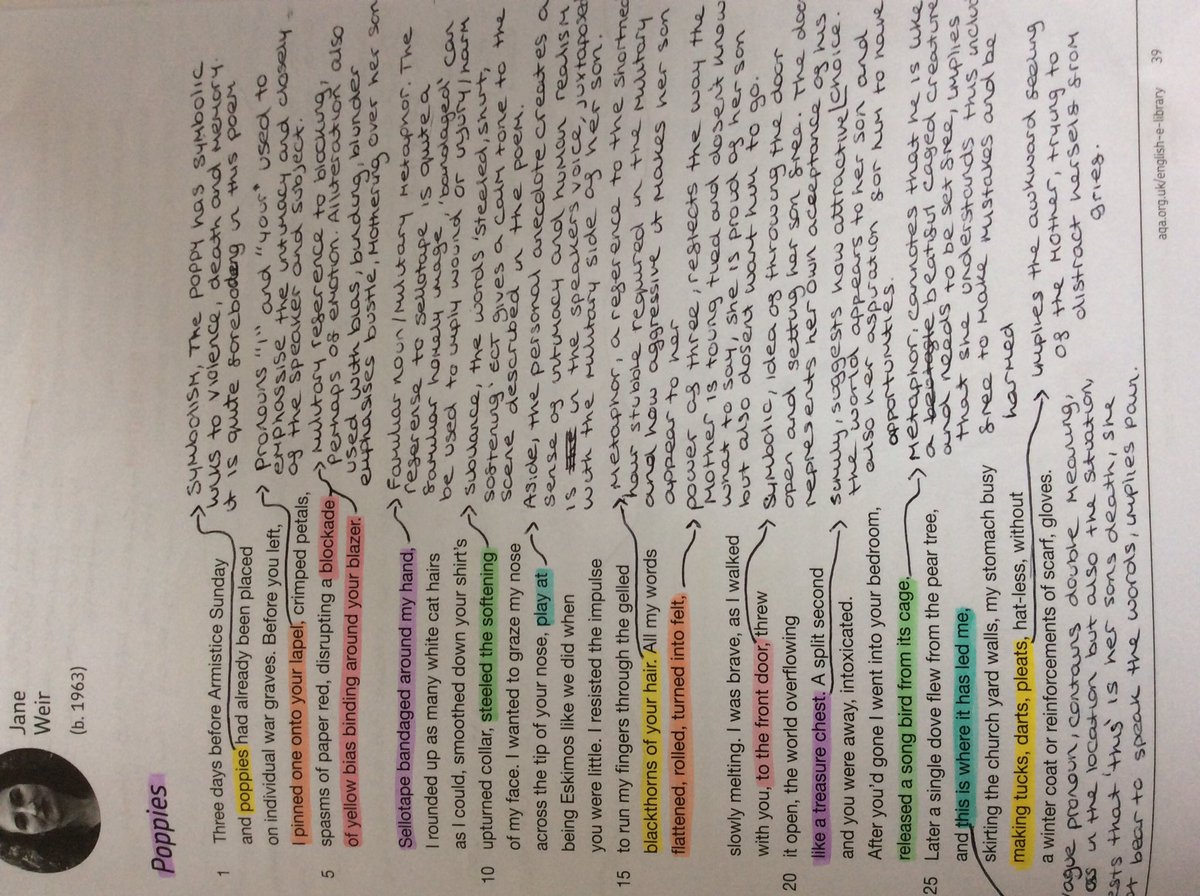 Jane
Weir
(b. 1963)
Poppies
1 Three days before Armistice Sunday
and poppies had already been placed
on individual war graves. Before you left,
I pinned one onto your lapel, crimped petals,
5 spasms of paper red, disrupting a blockade
of yellow bias binding around your blazer.
Sellotape bandaged around my hand,
I rounded up as many white cat hairs
as I could, smoothed down your shirt's
10 upturned collar, steeled the softening
of my face. I wanted to graze my nose
across the tip of your nose, play at
being Eskimos like we did when
you were little. I resisted the impulse
15 to run my fingers through the gelled
blackthorns of your hair. All my words
flattened, rolled, turned into felt,
slowly melting. I was brave, as I walked
with you, to the front door, threw
20 it open, the world overflowing
like a treasure chest. A split second
and you were away, intoxicated.
After you'd gone I went into your bedroom,
released a song bird from its cage.
25 Later a single dove flew from the pear tree,
and this is where it has led me,
skirting the church yard walls, my stomach busy
making tucks, darts, pleats, hat-less, without
a winter coat or reinforcements of scarf, gloves.
Symbolism, The poppy has symbolic
links to violence, death and memory.
it is quite foreboding in this poem
Pronouns "I" and "your" used to
emphasise the intimacy and closely
of the speaker and subject.
military reference to blocking,
Perhaps of emotion. Alliteration also
used with bias, binding, blunder
emphasises bustle, mothering over her son
Familiar noun/Military Metaphor. The
reference to sellotape is quite a
familiar homely image, 'bandaged' can
be used to imply wound or injury/harm
sibilance, the words 'steeled, shirt,
softening' ECT gives a calm tone to the
scene described in the poem.
Aside, the personal anecdote creates a
sense of intimacy and human realism
is in the speakers voice, juxtaposed
with the military side of her son.
Metaphor, a reference to the shortned
hair stubble required in the military
and how aggressive it makes her son
appear to her
power of three, reflects the way the
Mother is toung tied and dosen't know
what to say, she is proud of her son
but also dosent want him to go.
Symbolic, idea of throwing the door
open and setting her son free. The door
represents her own acceptance of his
choice.
simily, suggests how attractive
the world appears to her son and
also her aspiration for him to have
opportunities.
Metaphor, connotes that he is like
a beatiful caged creature
and needs to be set free, implies
that she understands this includ
free to make mistakes and be
harmed
implies the awkward feeling
of the Mother, trying to
distract herself from
grief.
vague pronoun, contains double meaning,
as in the location but also the situation,
ests that 'this' is her sons death, she
t bear to speak the words, implies pain.
aqa.org.uk/english-e-library 39